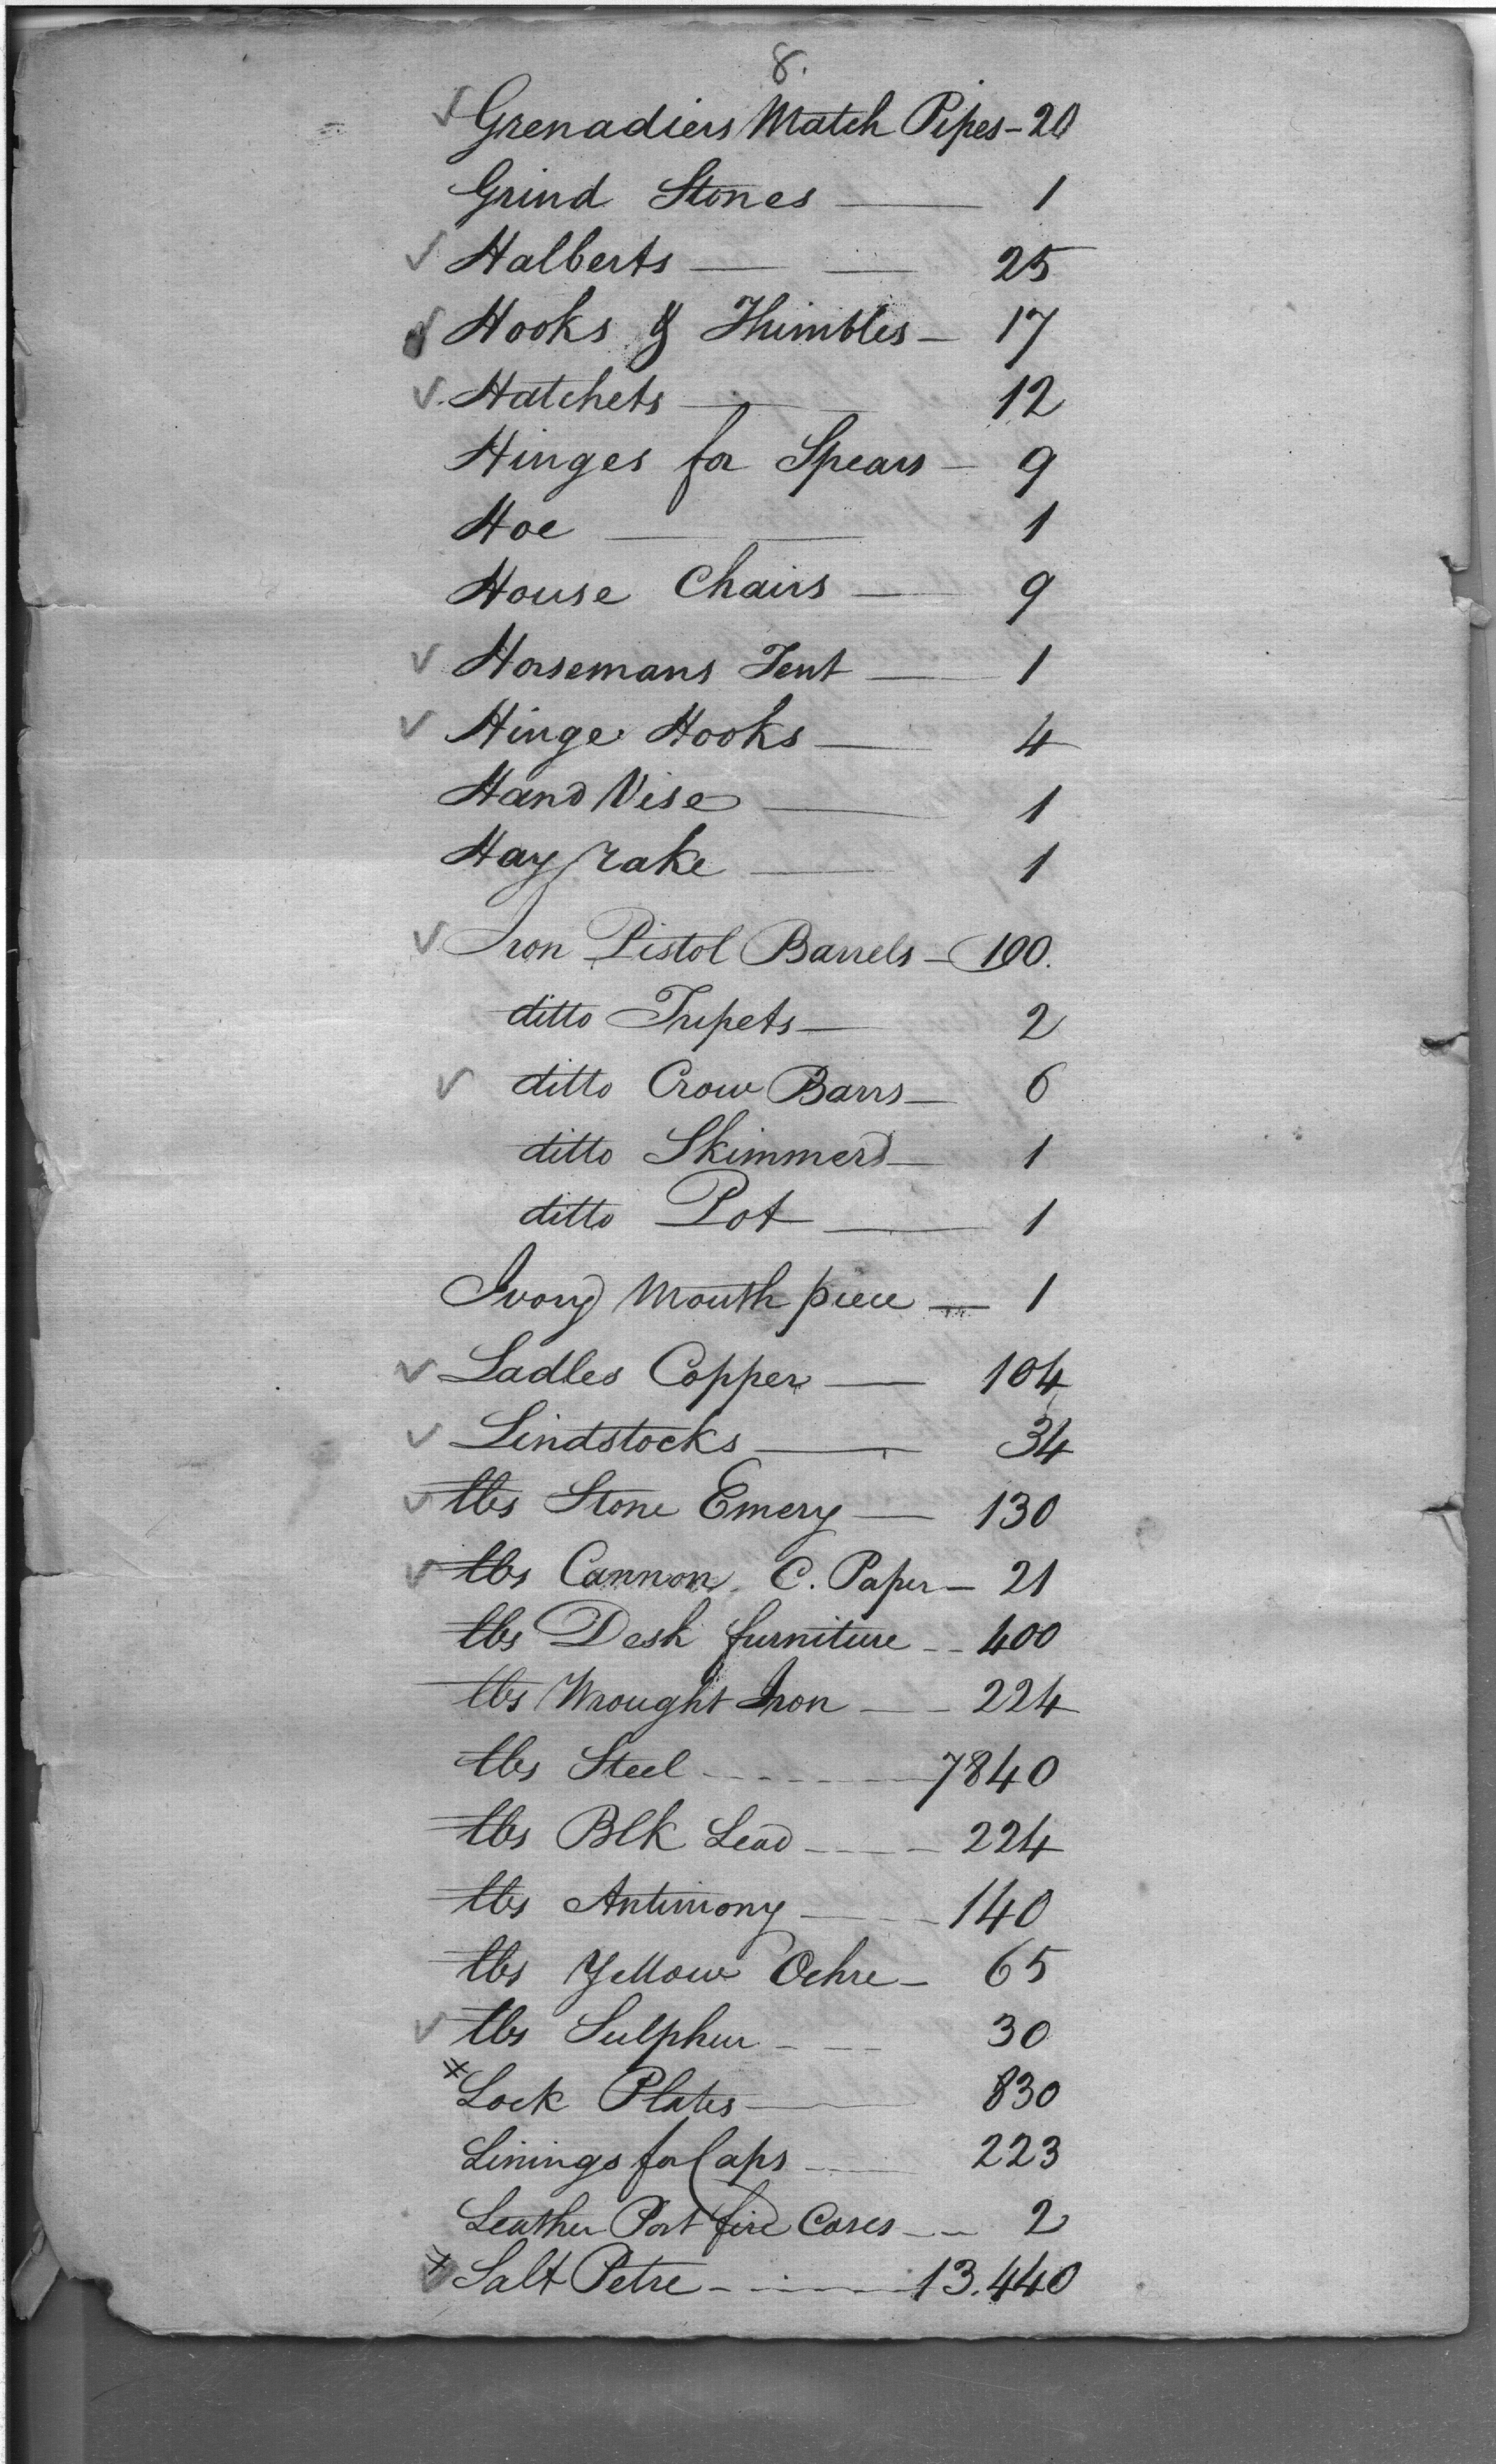 8.
✓ Grenadiers Match Pipes - 20
Grind Stones — 1
✓ Halberts — — 25
✓ Hooks & Thimbles - 17
✓ Hatchets — 12
Hinges for Spears - 9
Hoe — — 1
House Chairs — 9
✓ Horsemans Tent — 1
✓ Hinge Hooks — 4
Hand Vise — 1
Hay rake — 1
✓ Iron Pistol Barrels - 100.
ditto Tripets — 2
✓ ditto Crow Barrs — 6
ditto Skimmers — 1
ditto Pot — 1
Ivory Mouth piece — 1
✓ Ladles Copper — 104
✓ Lindstocks — 34
✓ lbs Stone Emery — 130
✓ lbs Cannon C. Paper — 21
lbs Desk furniture - - 400
lbs Wrought Iron — - 224
lbs Steel - - - - - 7840
lbs Blk Lead - - - - 224
lbs Antimony — - - 140
lbs Yellow Ochre - 65
✓ lbs Sulphur - — 30
* Lock Plates — 830
Linings for Caps — 223
Leather Port fire Cases - - 2
* ✓ Salt Petre - - - - 13.440